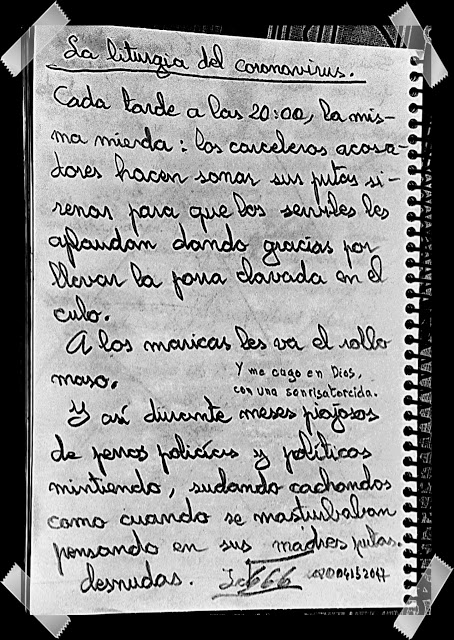 La liturgia del coronavirus.
Cada tarde a las 20:00, la mis-
ma mierda: los carceleros acosa-
dores hacen sonar sus putas si-
renas para que los serviles les
aplaudan dando gracias por
llevar la porra clavada en el
culo.
A los maricas les va el rollo
maso.
Y me cago en Dios,
con una sonrisa torcida.
Y así durante meses piojosos
de perros policías y políticos
mintiendo, sudando cachondos
como cuando se masturbaban
pensando en sus madres putas.
desnudas.
666